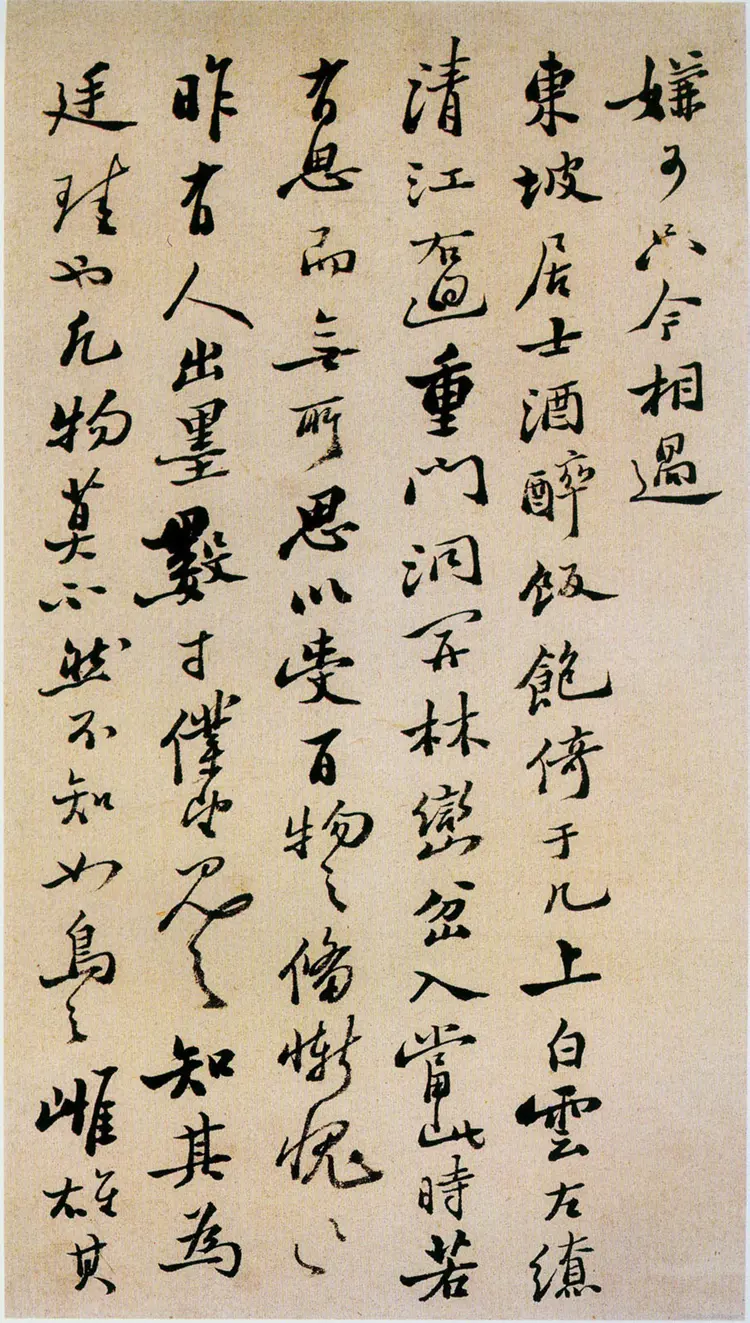 嫌可只今相過
東坡居士酒醉飯飽倚于几上白雲左繚
清江右迴重門洞開林巒岔入當此時若
有思而無所思以受百物之備慚愧々々
昨有人出墨數寸僕望見之知其為
廷珪也凡物莫不然不知如烏之雌雄其